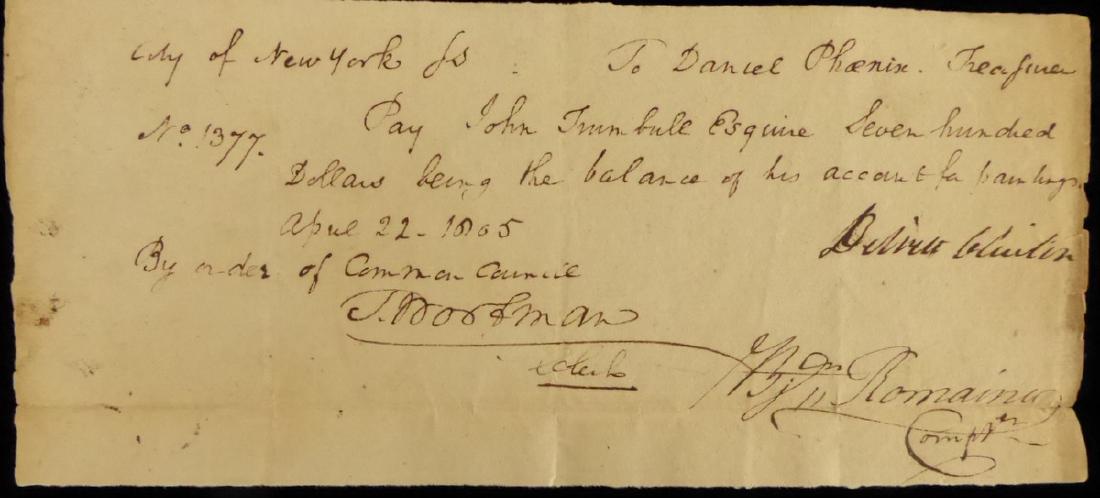 City of New York ss : To Daniel Phœnix. Treasurer
No. 1377. Pay John Trumbull Esquire Seven hundred
Dollars being the balance of his account for paintings.
April 22 - 1805
DeWitt Clinton
By order of Common Council
T. Wortman
Clerk
Benjn Romaine
Comptr